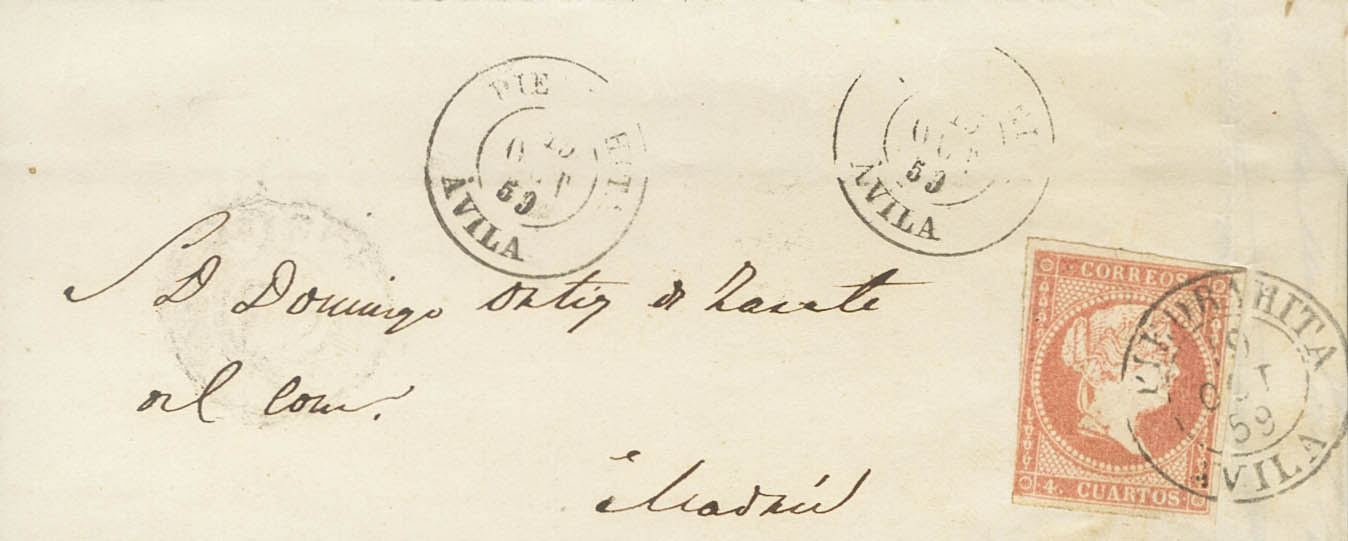 PIE HIT
15
OCT
59
ÁVILA
HI
15
OCT
59
AVILA
S D Domingo Ortiz de Zarate
del Com.
Madrid
CORREOS
4. CUARTOS
PIEDRAHITA
19
OCT
59
AVILA